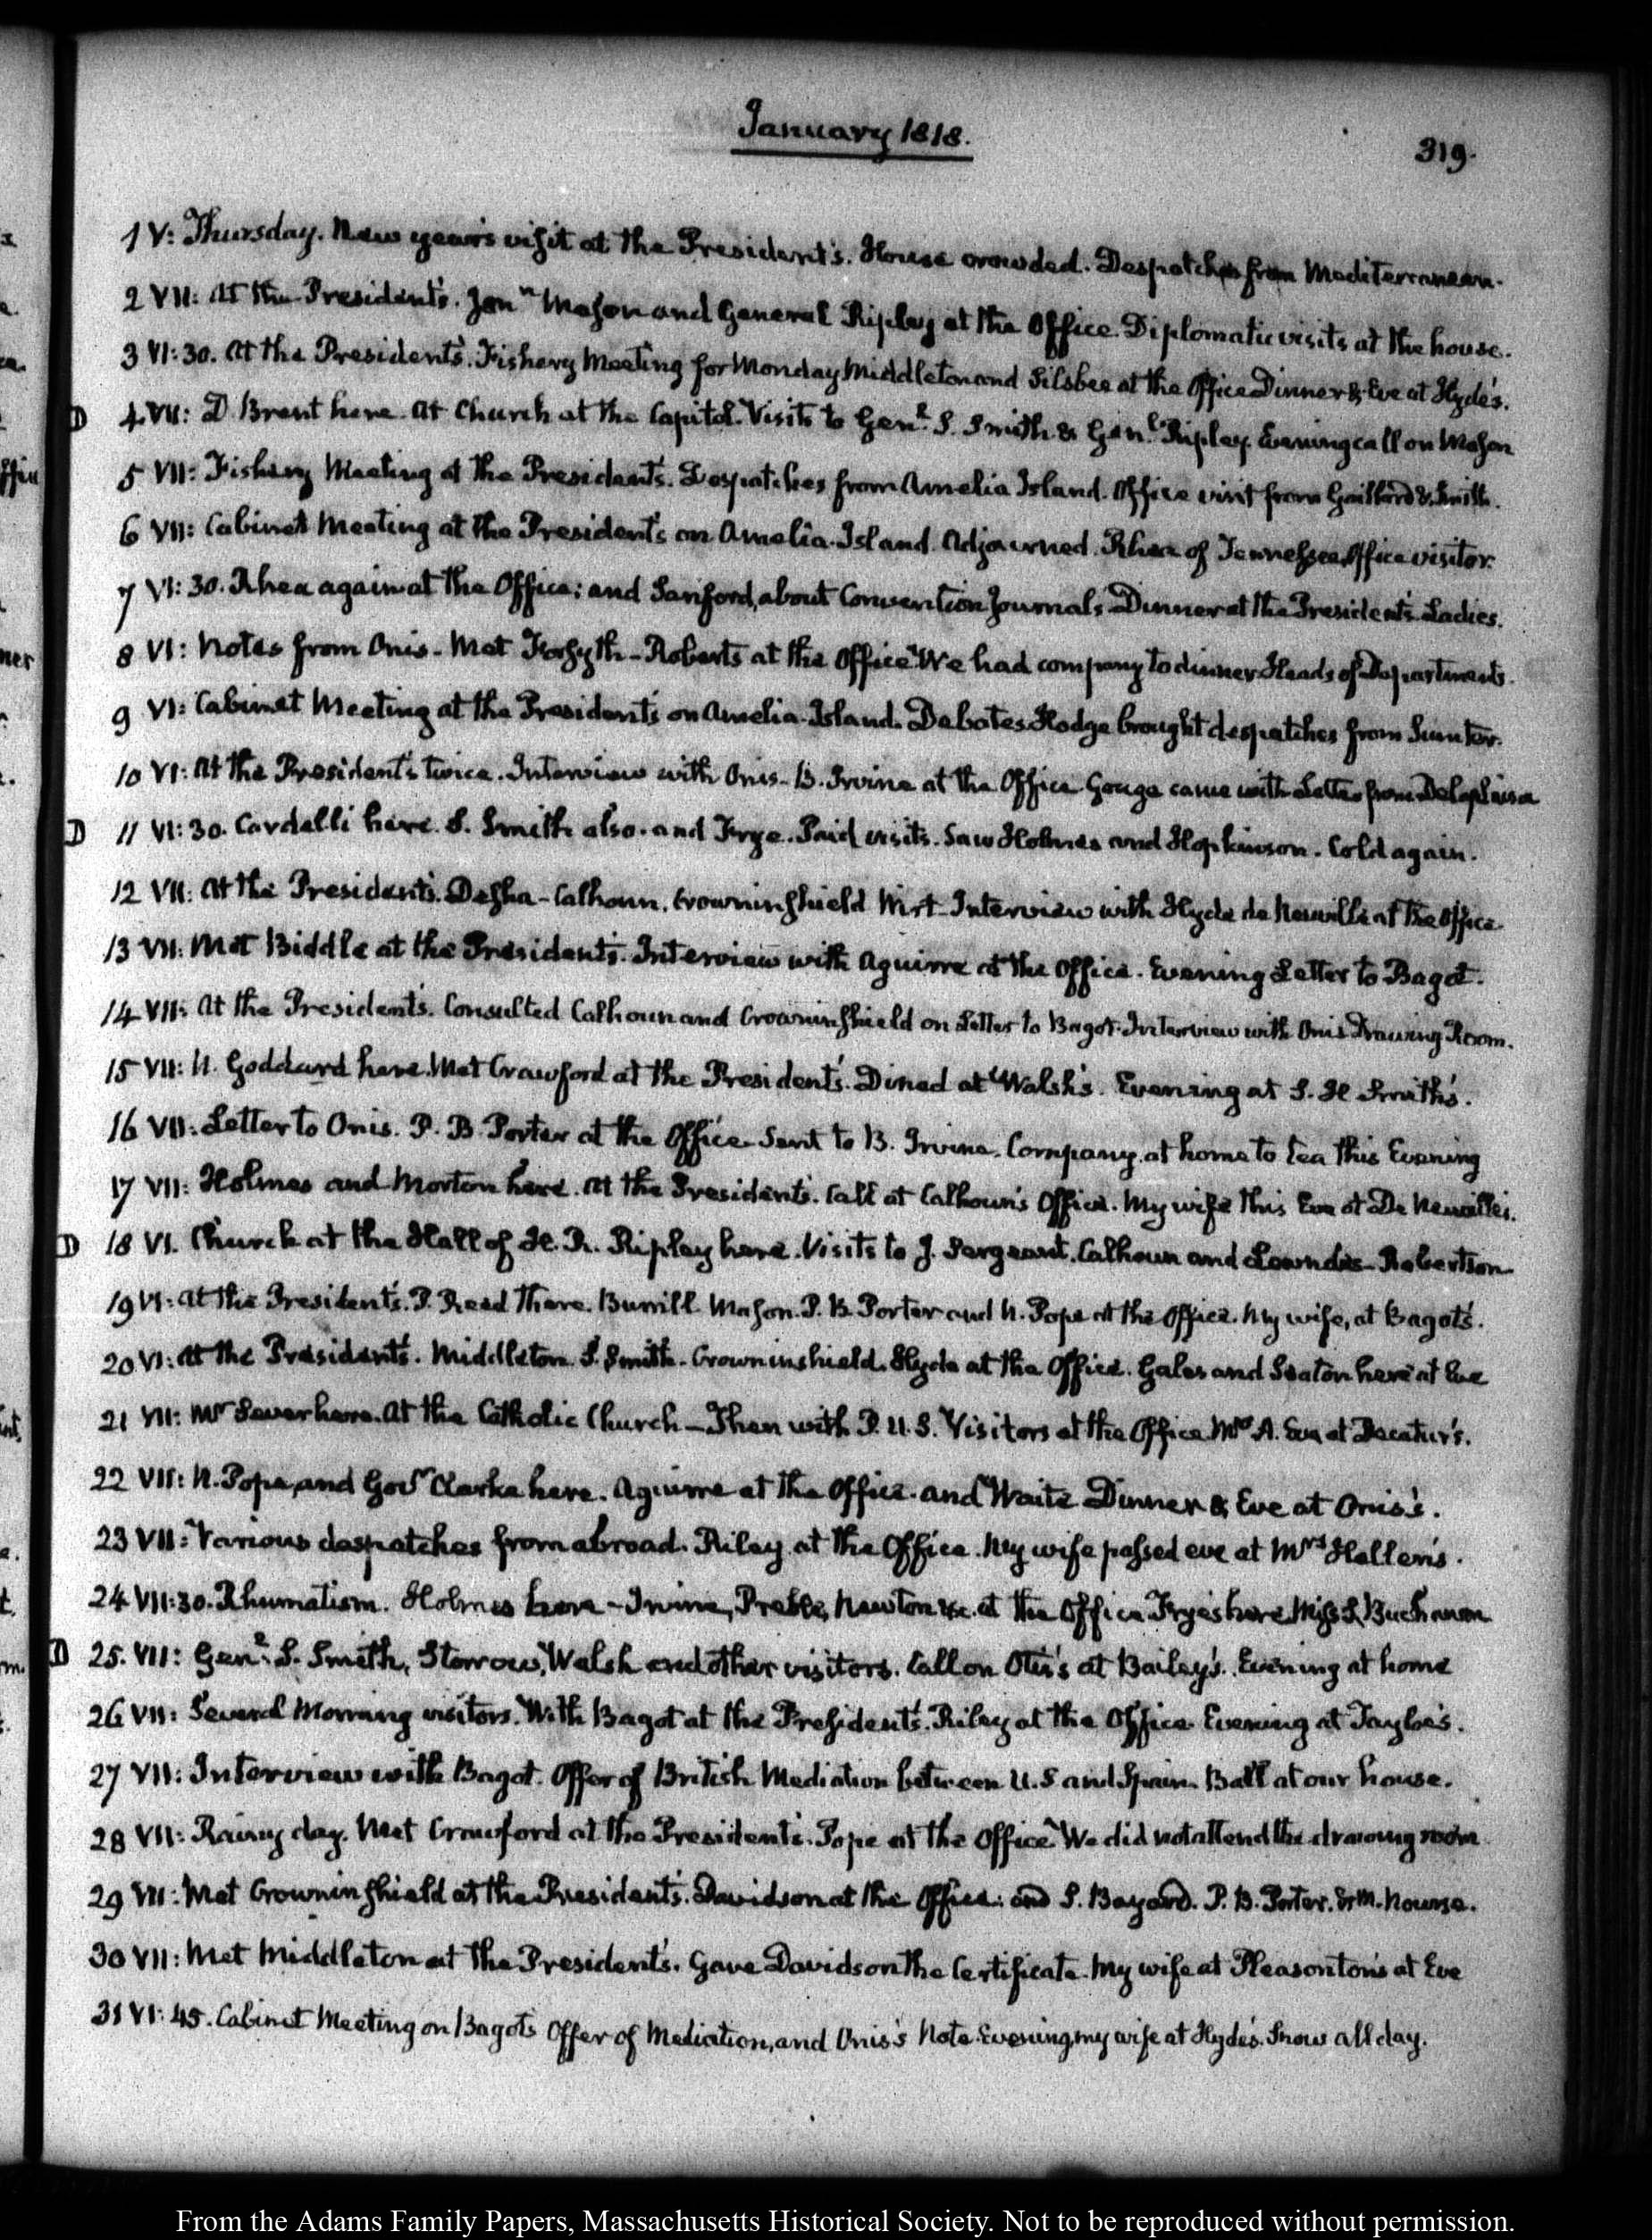 January 1818.
319.
1 V: Thursday. New year's visit at the President's. House crowded. Despatches from Mediterranean.
2 VII: At the President's. Jonn Mason and General Ripley at the Office. Diplomatic visits at the house.
3 VI:30. At the President's. Fishery Meeting for Monday Middleton and Silsbee at the Office Dinner & Eve at Hyde's.
D 4 VII: D. Brent here. At Church at the Capitol. Visits to Genl. S. Smith & Genl. Ripley. Evening call on Mason
5 VII: Fishery Meeting at the President's. Despatches from Amelia Island. Office visit from Gaillard & Smith.
6 VII: Cabinet Meeting at the President's on Amelia Island. Adjourned. Rhea of Tennessee, Office visitor.
7 VI:30. Rhea again at the Office; and Sanford, about Convention Journals. Dinner at the President's. Ladies.
8 VI: Notes from Onis - Met Forsyth - Roberts at the Office We had company to dinner Heads of Departments.
9 VI: Cabinet Meeting at the President's on Amelia Island. Debates Hodge brought despatches from Sumter.
10 VI: At the President's twice. Interview with Onis - B. Irvine at the Office Gouge came with Letter from Delaplaine
D 11 VI:30. Cardelli here. S. Smith also. and Frye. Paid visits. Saw Holmes and Hopkinson. Cold again.
12 VII: At the President's. Desha - Calhoun. Crowninshield Wirt - Interview with Hyde de Neuville at the Office.
13 VII: Met Biddle at the President's. Interview with Aguirre at the Office. Evening Letter to Bagot.
14 VII: At the President's. Consulted Calhoun and Crowninshield on Letter to Bagot. Interview with Onis Drawing Room.
15 VII: U. Goddard here. Met Crawford at the President's. Dined at Walsh's. Evening at S. H. Smith's.
16 VII: Letter to Onis. P. B. Porter at the Office Sent to B. Irvine. Company, at home to tea this Evening
17 VII: Holmes and Morton here. At the President's. Call at Calhoun's Office. My wife this Eve at De Neuville's.
D 18 VI. Church at the Hall of H. R. Ripley here. Visits to J. Sergeant. Calhoun and Lowndes - Robertson
19 VI: At the President's. P. Read there. Burrill Mason. P. B. Porter and N. Pope at the Office. My wife, at Bagot's.
20 VI: At the President's. Middleton. S. Smith. Crowninshield. Hyde at the Office. Gales and Seaton here at Eve
21 VII: Mr Sever here. At the Catholic Church - Then with P. U. S. Visitors at the Office Mrs A. Eve at Decatur's.
22 VII: N. Pope, and Govr Clarke here. Aguirre at the Office. and Waite Dinner & Eve at Onis's.
23 VII: Various despatches from abroad. Riley at the Office. My wife passed eve at Mrs Hellen's.
24 VII:30. Rhumatism. Holmes here - Irvine, Preble, Newton &c. at the Office Fryes here Miss S. Buchanan
D 25. VII: Genl. S. Smith, Storrow, Walsh and other visitors. Call on Otis's at Bailey's. Evening at home
26 VII: Several Morning visitors. With Bagot at the President's. Riley at the Office Evening at Tayloe's.
27 VII: Interview with Bagot. Offer of British Mediation between U. S and Spain. Ball at our house.
28 VII: Rainy day. Met Crawford at the President's. Pope at the Office We did not attend the drawing room
29 VII: Met Crowninshield at the President's. Davidson at the Office: and S. Bayard. P. B. Porter. & M. Nourse.
30 VII: Met Middleton at the President's. Gave Davidson the Certificate. My wife at Pleasonton's at Eve
31 VI:45. Cabinet Meeting on Bagot's Offer of Mediation, and Onis's Note Evening, my wife at Hyde's. Snow all day.
From the Adams Family Papers, Massachusetts Historical Society. Not to be reproduced without permission.